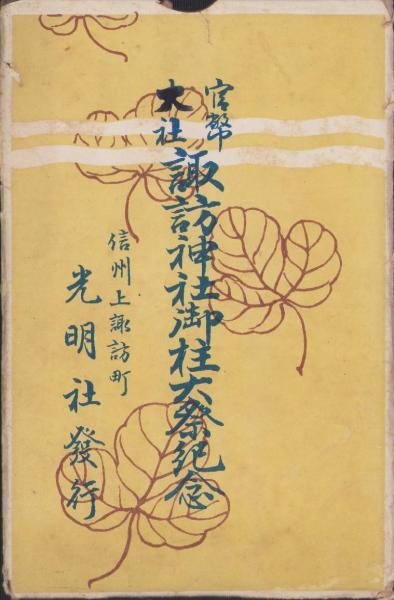 官幣
大社
諏訪神社御柱大祭紀念
信州上諏訪町
光明社發行